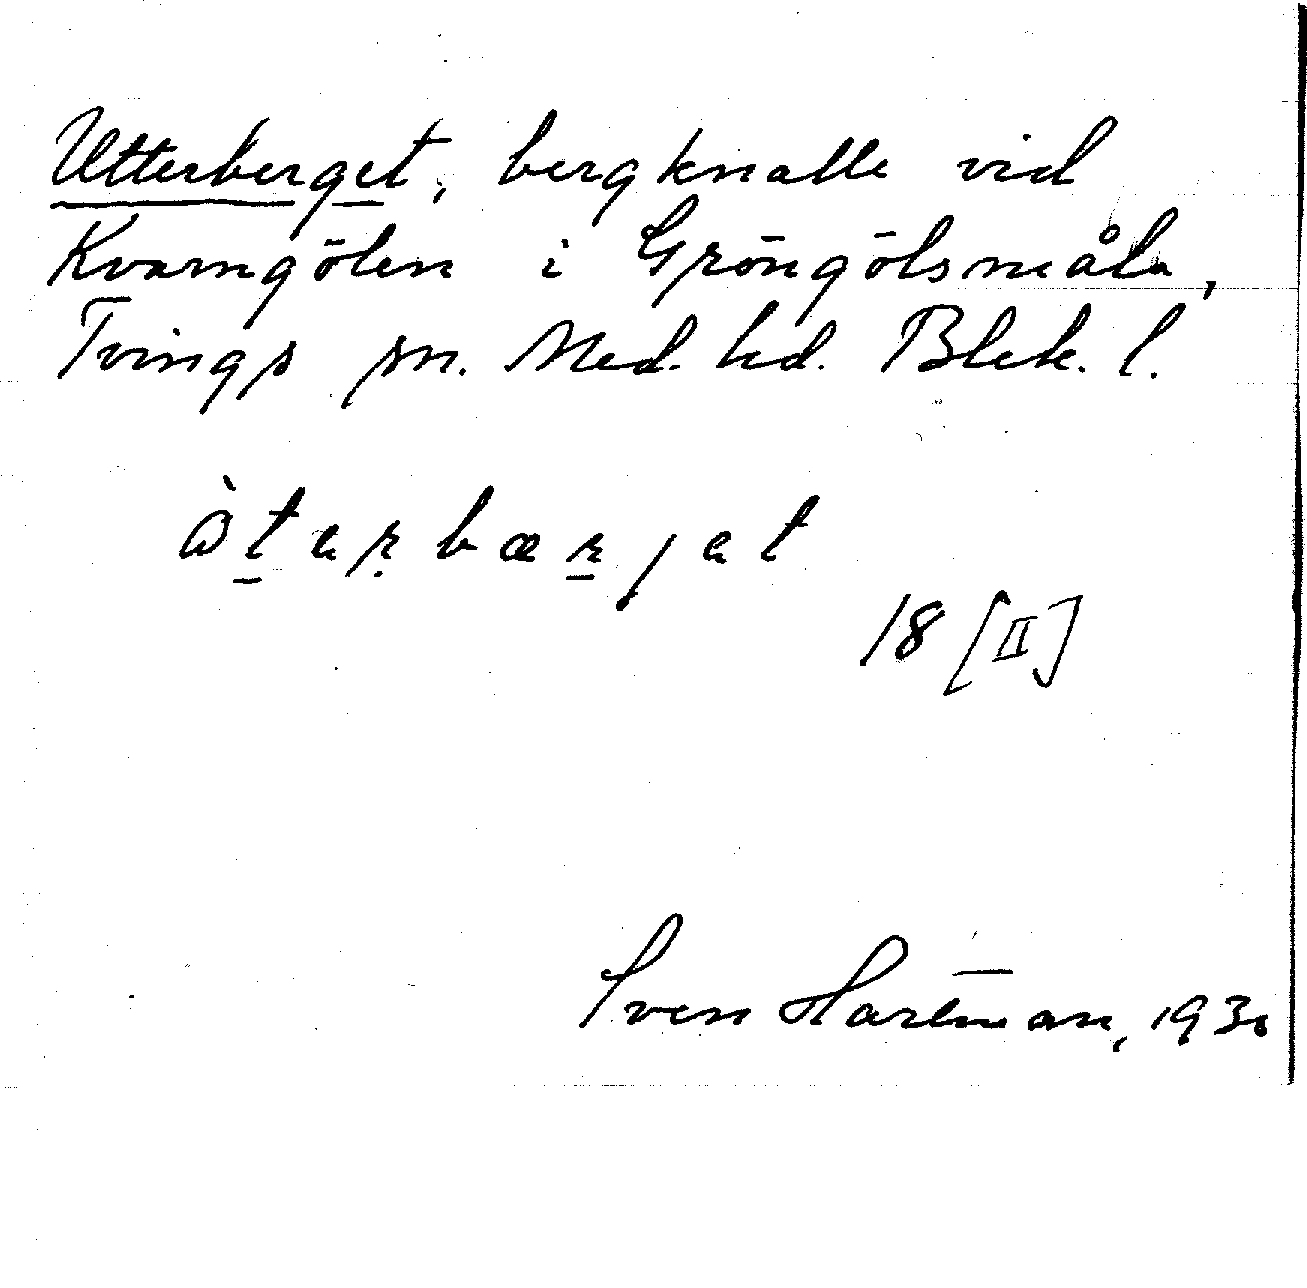 Utterberget, bergknalle vid
Kvarngölen i Gröngölsmåla,
Tvings sn. Med. hd. Blek. l.
18 [II]
Sven Hartman, 1930